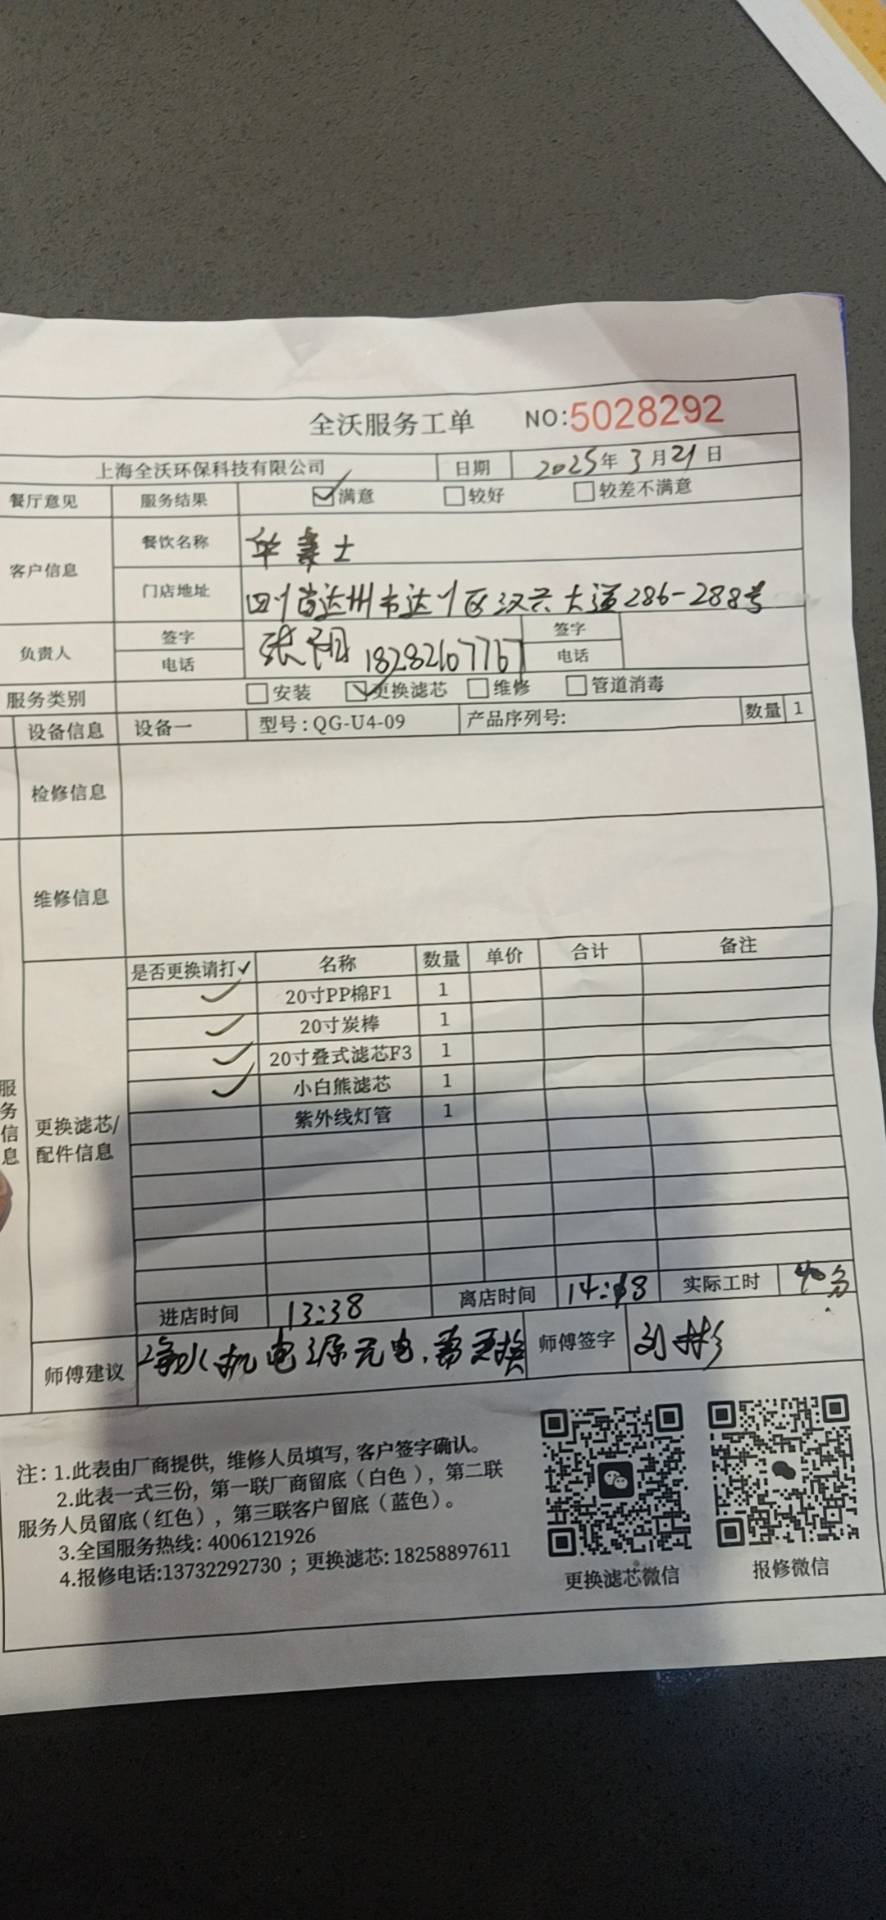 全沃服务工单 NO:5028292
上海全沃环保科技有限公司 日期 2025年3月21日
餐厅意见 服务结果 ☑满意 □较好 □较差不满意
客户信息 餐饮名称 华莱士
门店地址 四川省达州市达川区汉兴大道286-288号
负责人 签字 张 签字
电话 18282607767 电话
服务类别 □安装 ☑更换滤芯 □维修 □管道消毒
设备信息 设备一 型号:QG-U4-09 产品序列号: 数量 1
检修信息
维修信息
服务信息
更换滤芯/配件信息
是否更换请打✓ 名称 数量 单价 合计 备注
✓ 20寸PP棉F1 1
✓ 20寸炭棒 1
✓ 20寸叠式滤芯F3 1
✓ 小白熊滤芯 1
紫外线灯管 1
进店时间 13:38 离店时间 14:18 实际工时 40分
师傅建议 净水机电源无电,需更换 师傅签字 刘彬
注:1.此表由厂商提供,维修人员填写,客户签字确认。
2.此表一式三份,第一联厂商留底(白色),第二联
服务人员留底(红色),第三联客户留底(蓝色)。
3.全国服务热线:4006121926
4.报修电话:13732292730;更换滤芯:18258897611
更换滤芯微信 报修微信